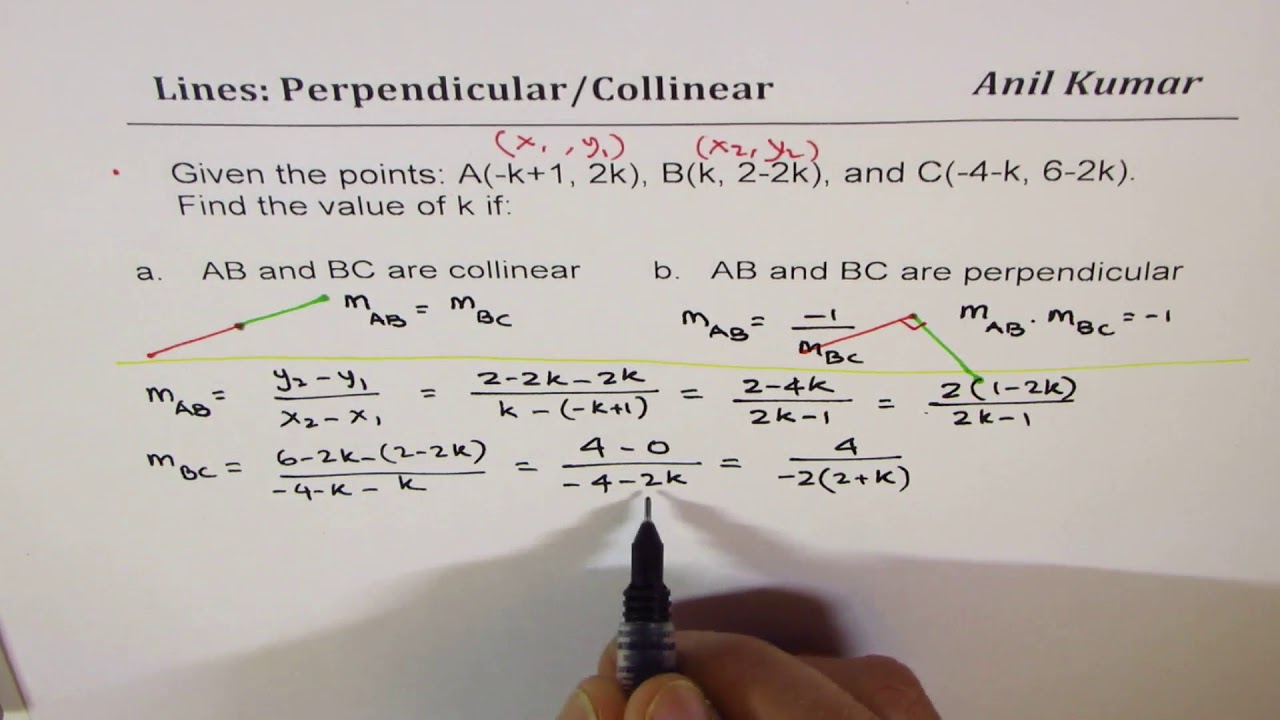 Lines: Perpendicular/Collinear Anil Kumar
(x₁, y₁) (x₂, y₂)
Given the points: A(-k+1, 2k), B(k, 2-2k), and C(-4-k, 6-2k).
Find the value of k if:
a. AB and BC are collinear b. AB and BC are perpendicular
m_AB = m_BC m_AB = -1/m_BC m_AB · m_BC = -1
m_AB = (y₂ - y₁)/(x₂ - x₁) = (2-2k-2k)/(k-(-k+1)) = (2-4k)/(2k-1) = 2(1-2k)/(2k-1)
m_BC = (6-2k-(2-2k))/(-4-k-k) = (4-0)/(-4-2k) = 4/(-2(2+k))